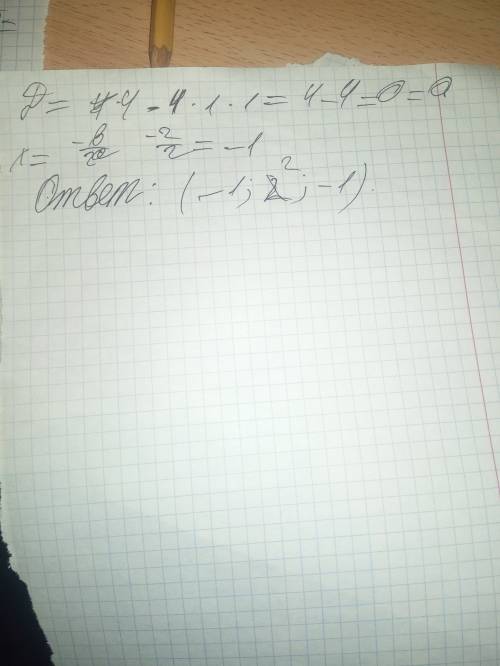 D = 4 - 4 · 1 · 1 = 4 - 4 = 0 = 0
x = -b/2a -2/2 = -1
Ответ: (-1; 2; -1).